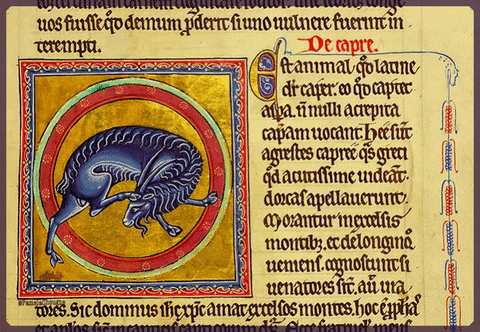 uos fuisse. qđ demum p̱derit si uno uulnere fuerint in
terempti.
De capre.
Est animal. qđ latine
dr̄ caper. eo qđ captet
asp̱a. ut̄ nulli acrepita
capam uocant. Hee sūt
agrestes capree q̄s greci
qđ acutissime uideāt.
dorcas apellauerunt
Morantur in excelsis
montibꝫ. et de longinq̊
uemens. cognoscunt si
uenatores sīt. aū uia
tores. Sic dominus amat excelsos montes. hoc ē